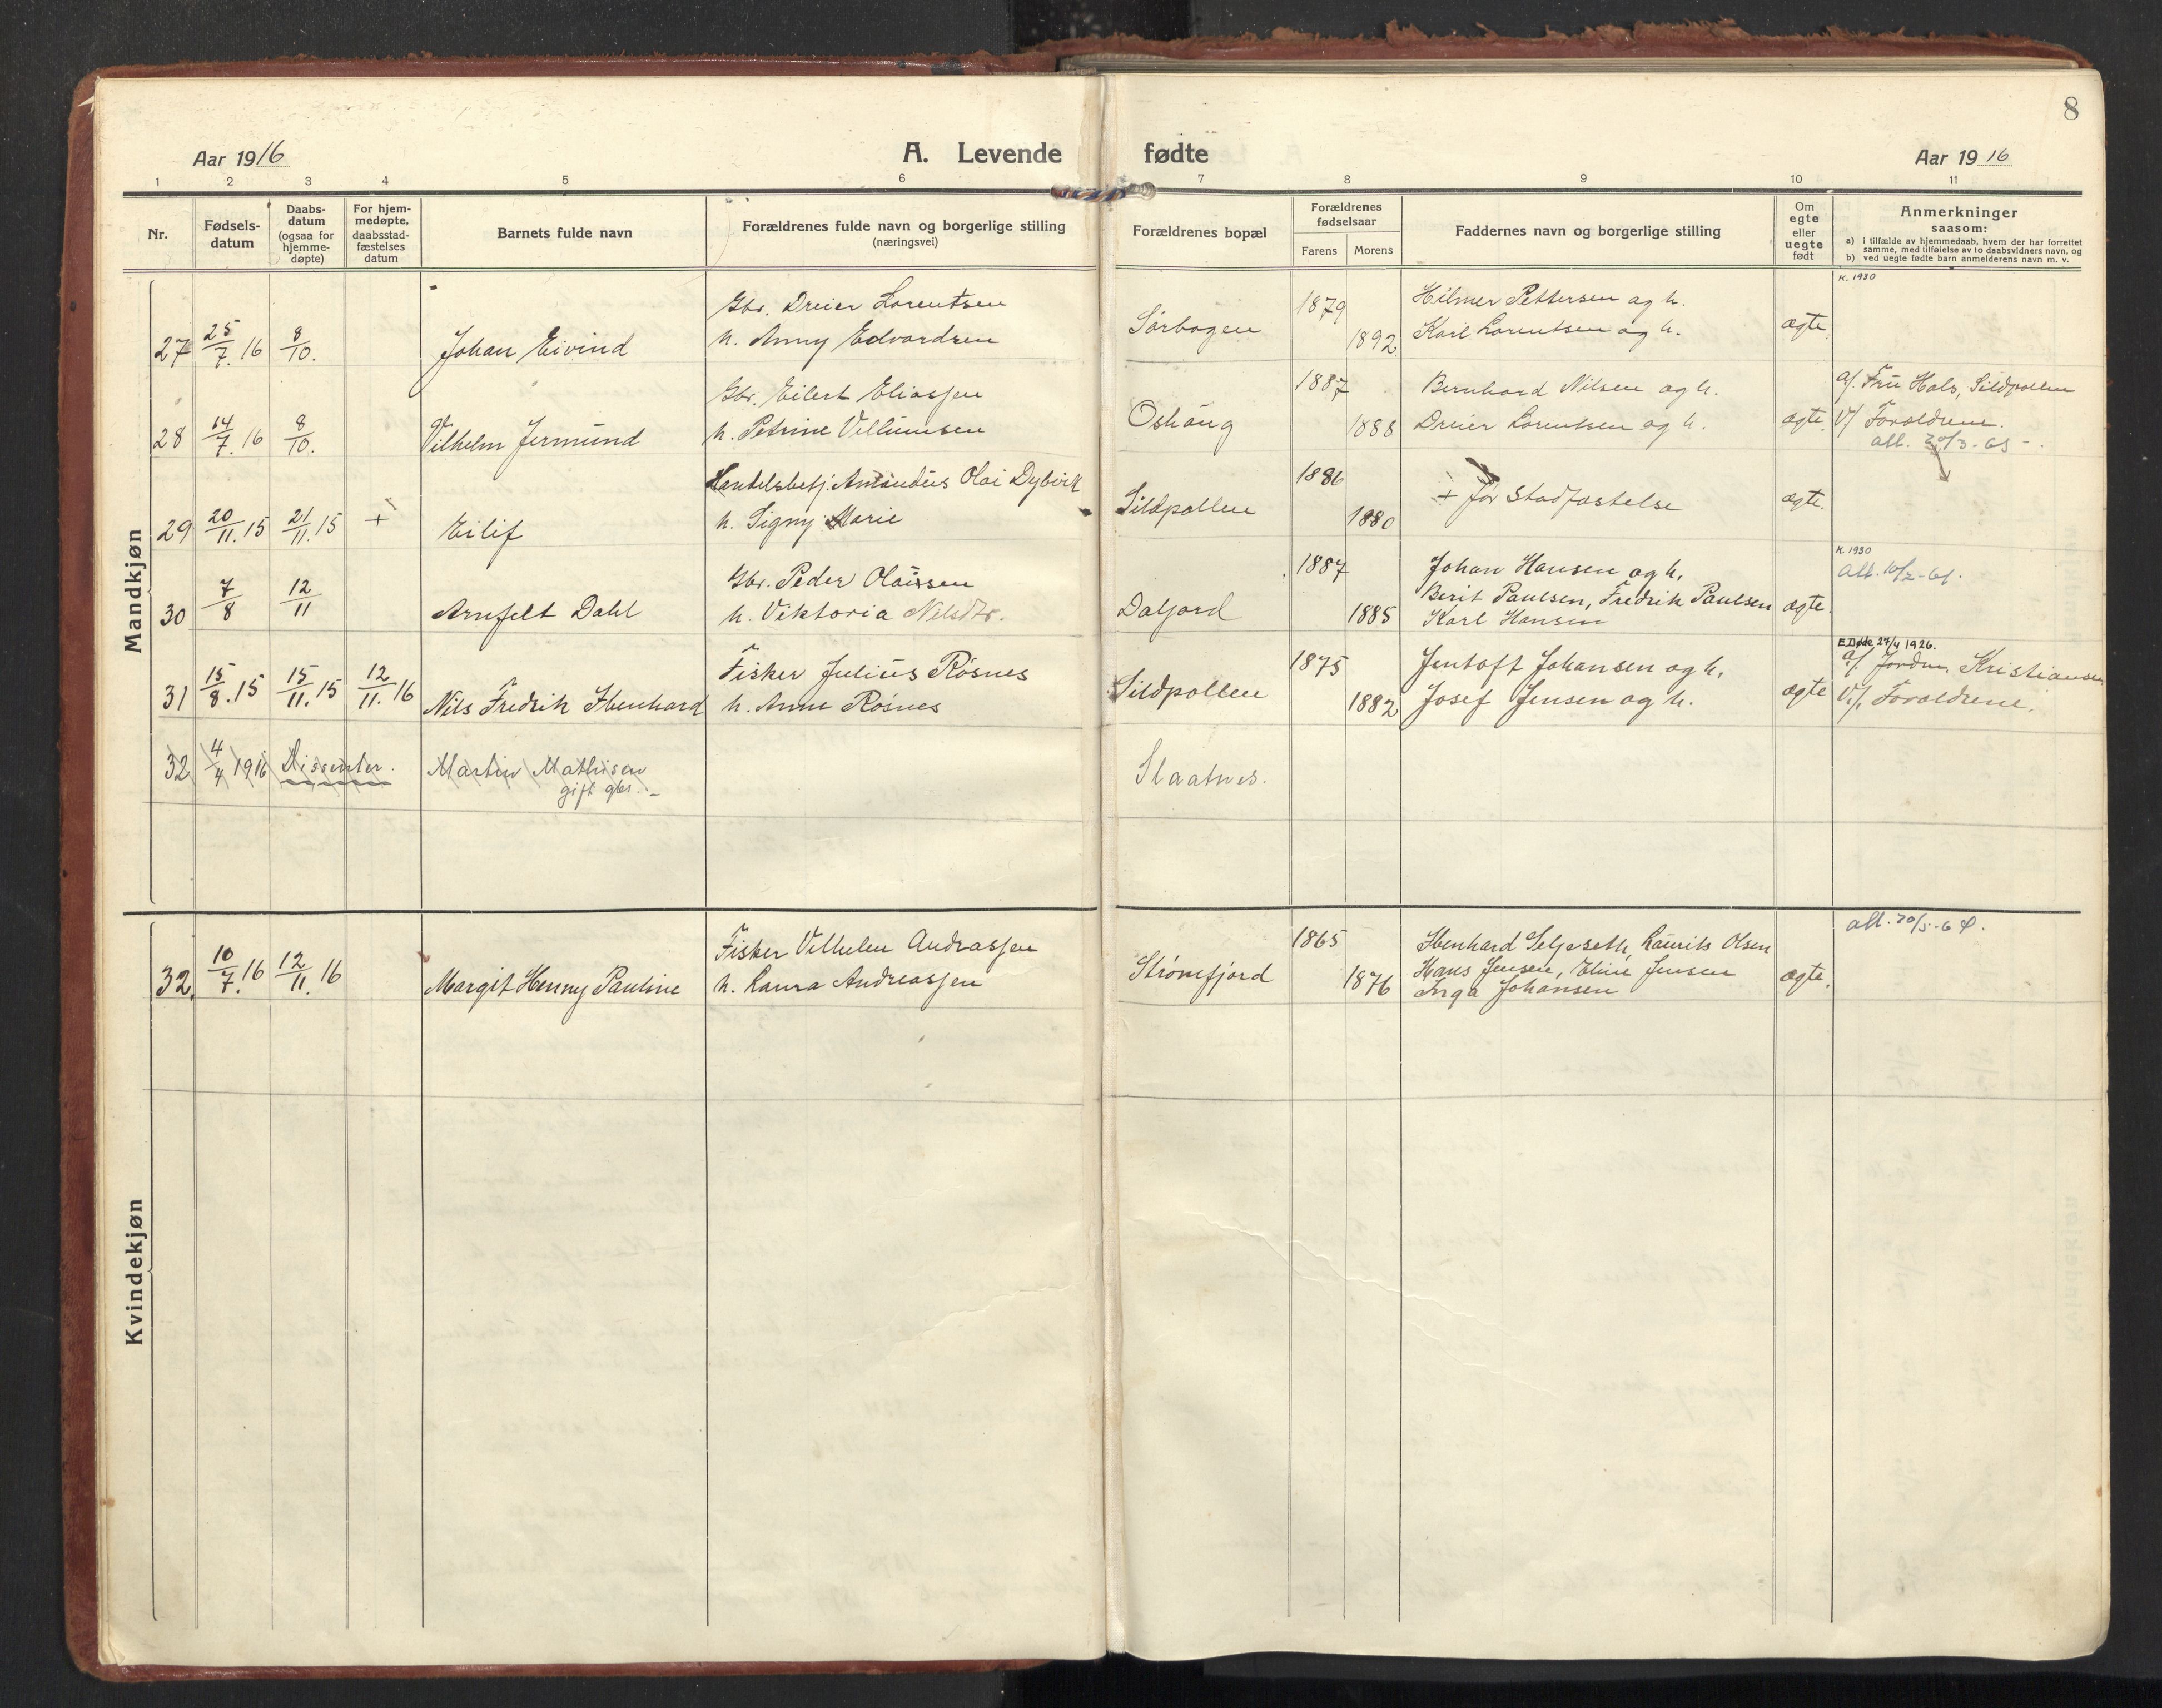 8
Aar 1916
A. Levende fødte
Aar 1916
1 2 3 4 5 6 7 8 9 10 11
Nr.
Fødsels-
datum
Daabs-
datum
(ogsaa for
hjemme-
døpte)
For hjem-
medøpte,
daabsstad-
fæstelses
datum
Barnets fulde navn
Forældrenes fulde navn og borgerlige stilling
(næringsvei)
Forældrenes bopæl
Forældrenes
fødselsaar
Farens Morens
Faddernes navn og borgerlige stilling
Om
egte
eller
uegte
født
Anmerkninger
saasom:
a) i tilfælde av hjemmedaab, hvem der har forrettet
samme, med tilføielse av to daabsvidners navn, og
b) ved uegte fødte barn anmelderens navn m. v.
Mandkjøn
K. 1930
Gbr. Dreier Lorentsen 1879 Hilmer Pettersen og h.
27 25/7.16 8/10. Johan Eivind h. Anny Edvardsen Sørbogen 1892 Karl Lorentsen og h. ægte
Gbr. Eilert Eliassen 1887 Bernhard Nilsen og h. a/. Fru Hals, Sildpollen
28 14/7.16 8/10. Vilhelm Jermund h. Petrine Villumsen Oshaug 1888 Dreier Lorentsen og h. ægte. V/ Forældrene.
att. 20/3-65-.
Handelsbetj. Amandus Olai Dybvik 1886
29 20/11.15 21/11.15 + Eilif h. Signy Marie Sildpollen 1880 + før Stadfæstelse ægte.
K. 1930
Gbr. Peder Olaissen 1887 Johan Hansen og h. att. 10/2-61.
Berit Paulsen, Fredrik Paulsen
30 7/8 12/11 Arnfelt Dahl h. Viktoria Nilsdtr. Dalfjord 1885 Karl Hansen ægte.
E Døde 24/4 1926.
Fisker Julius Røsnes 1875 Jentoft Johansen og h. a/. Jordm. Kristiansen
31 15/8.15 15/11.15 12/11.16 Nils Fredrik Ibenhard h. Anne Røsnes Sildpollen 1882 Josef Jensen og h. ægte V./. Forældrene.
32 4/4 1916 Dissenter. Martin Mathisen Slaatnes.
gift gbr. -
Kvindekjøn
att. 20/5-64.
Fisker Vilhelm Andrassen 1865 Ibenhard Seljeseth, Laurits Olsen
32. 10/7.16 12/11.16 Margit Henny Pauline h. Laura Andreassen Strømfjord 1876 Hans Jensen, Eline Jensen ægte.
Inga Johansen